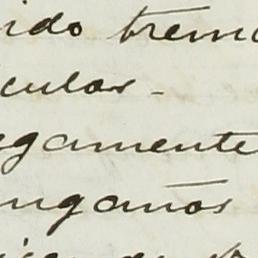 ido trem
culas -
gamente
ngaños